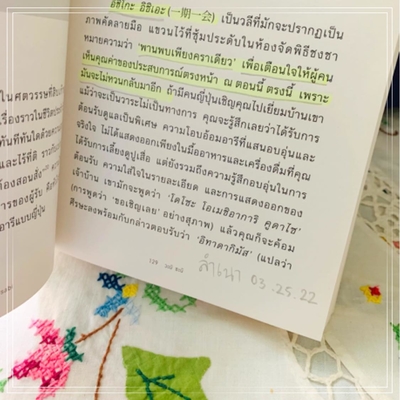 อิชิโกะ อิชิเอะ (一期一会) เป็นวลีที่มักจะปรากฏเป็น
ภาพคัดลายมือ แขวนไว้ที่ซุ้มประดับในห้องจัดพิธีชงชา
หมายความว่า 'พานพบเพียงคราเดียว' เพื่อเตือนใจให้ผู้คน
เห็นคุณค่าของประสบการณ์ตรงหน้า ณ ตอนนี้ ตรงนี้ เพราะ
มันจะไม่หวนกลับมาอีก ถ้ามีคนญี่ปุ่นเชิญคุณไปเยี่ยมบ้านเขา
แม้ว่าจะเป็นวาระไม่เป็นทางการ คุณจะรู้สึกเลยว่าได้รับการ
ต้อนรับดูแลเป็นพิเศษ ความโอบอ้อมอารีที่แสนอบอุ่นและ
จริงใจ ไม่ได้แสดงออกเพียงในมื้ออาหารและเครื่องดื่มที่คุณ
ได้รับการเลี้ยงดูปูเสื่อ แต่ยังรวมถึงความรู้สึกอบอุ่นในการ
ต้อนรับ ความใส่ใจในรายละเอียด และการแสดงออกของ
เจ้าบ้าน เขามักจะพูดว่า 'โดโซะ โอเมชิอาการิ คูดาไซ'
(การพูดว่า 'ขอเชิญเลย' อย่างสุภาพ) แล้วคุณก็จะค้อม
ศีรษะลงพร้อมกับกล่าวตอบรับว่า 'อิทาดากิมัส' (แปลว่า
129
สำเนา 03.25.22
ในศตวรรษที่
เรื่องราวในชีวิตประจำ
ทันทีทันใดด้วยความ
และไร้ที่ติ
ห้องสอนสั่ง
การของผู้รับ
อารีแบบญี่ปุ่น